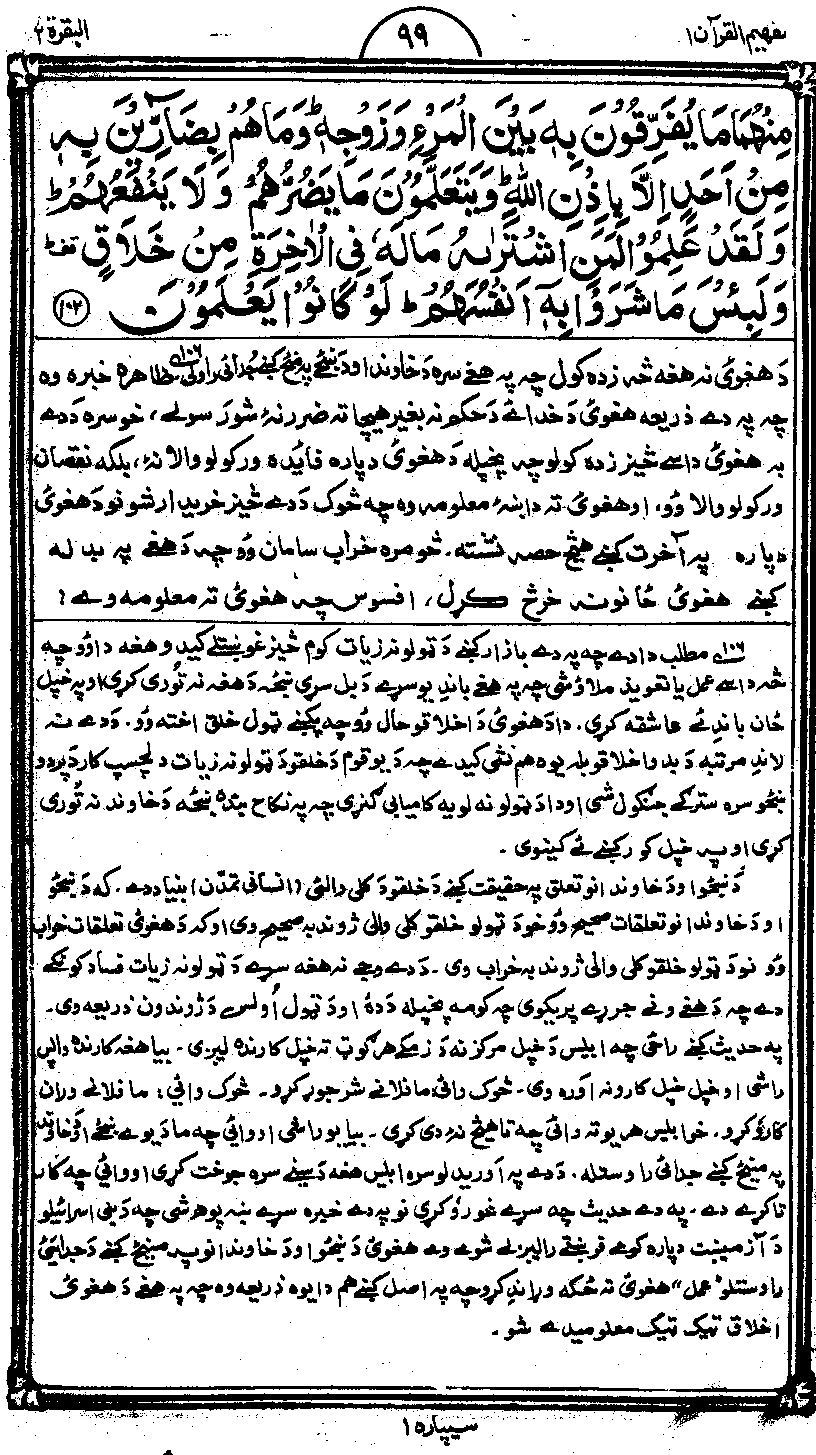 تفهيم القرآن ١ ٩٩ البقرة ٢
مِنْهُمَا مَا يُفَرِّقُوْنَ بِهٖ بَيْنَ الْمَرْءِ وَزَوْجِهٖ ؕ وَمَا هُمْ بِضَآرِّيْنَ بِهٖ
مِنْ اَحَدٍ اِلَّا بِاِذْنِ اللّٰهِ ؕ وَيَتَعَلَّمُوْنَ مَا يَضُرُّهُمْ وَلَا يَنْفَعُهُمْ ؕ
وَلَقَدْ عَلِمُوْا لَمَنِ اشْتَرٰىهُ مَا لَهٗ فِى الْاٰخِرَةِ مِنْ خَلَاقٍ
وَلَبِئْسَ مَا شَرَوْا بِهٖٓ اَنْفُسَهُمْ ؕ لَوْ كَانُوْا يَعْلَمُوْنَ ﴿١٠٢﴾
دَ هغوئ نه هغه څه زده کول چه په هغے سره دَ خاوند او دَ ښځے په مينځ کښے جدائى راولى ١٠٦ے ظاهره خبره وه
چه په دے ذريعه هغوئ دَ خدائے دَ حکم نه بغير هيچا ته ضرر نۀ شوَ رسولے، خو سره دَ دے
به هغوئ داسے څيز زده کولو چه پخپله دَ هغوئ دپاره فائده ورکولو والا نۀ، بلکه نقصان
ورکولو والا وُو، او هغوئ ته دا ښۀ معلومه وه چه څوک دَ دے څيز خريدار شو نو دَ هغوئ
دپاره په آخرت کښے هيڅ حصه نشته. څومره خراب سامان وۀ چه دَ هغے په بدله
کښے هغوئ ځانونه خرڅ کړل، افسوس چه هغوئ ته معلومه وے!
١٠٦ے مطلب دا دے چه په دے بازار کښے دَ ټولو نه زيات کوم څيز غوښتلے کيدو هغه دا وُو چه
څه داسے عمل يا تعويذ ملاؤ شى چه په هغے باندِ يو سړے دَ بل سړى ښځه دَ هغه نه تُورى کړى او په خپل
ځان باندِ ئے عاشقه کړى. دا دَ هغوئ دَ اخلاقو حال وُو چه پکښے ټول خلق اخته وُو. دَ دے نه
لاندِ مرتبه دَ بد و اخلاقو بله يوه هم نشى کيدے چه دَ يو قوم دَ خلقو دَ ټولو نه زيات دلچسپ کار دَ پردو
ښځو سره سترګے جنګول شى او دا دَ ټولو نه لويه کاميابى ګنړى چه په نکاح بنده ښځه دَ خاوند نه تُورى
کړى او په خپل کور کښے ئے کينوى .
دَ ښځو او دَ خاوندانو تعلق په حقيقت کښے دَ خلقو دَ کلى والئى (انسانى تمدّن) بنياد دے. که دَ ښځو
او دَ خاوندانو تعلقات صحيح وُو خو دَ ټولو خلقو کلى والى ژوند به صحيح وى او که دَ هغوئ تعلقات خراب
وُو نو دَ ټولو خلقو کلى والى ژوند به خراب وى. دَ دے وجے نه هغه سړے دَ ټولو نه زيات فساد کونکے
دے چه دَ هغے ونے جررے پريکوى چه کومه پخپله دَ دۀ او دَ ټول اُولس دَ ژوندون ذريعه وى.
په حديث کښے راځى چه ابليس دَ خپل مرکز نه دَ زمکے هر ګوټ ته خپل کارنده ليږى. بيا هغه کارنده واپس
راشى او خپل خپل کارونه اوره وى. څوک وائى: ما فلانے شر جوړ کړو. څوک وائي: ما فلانے وران
کارئ وکړو. خو ابليس هر يو ته وائى چه تا هيڅ نۀ دى کړى. بيا يو راشى او وائى چه ما دَ يوے ښځے او خاوند
په مينځ کښے جدائى راوستله. دَ دے په آوريدلو سره ابليس هغه دَ سينے سره جوخت کړى او وائى چه کار
تا کړے دے. په دے حديث چه سړے غور وُ کړى نو په دے خبره سړے ښه پوهه شى چه دَ بنى اسرائيلو
دَ آزمينت دپاره کومے فرښتے راليږلے شوے وے هغوئ دَ ښځو او دَ خاوندانو په مينځ کښے دَ جدائئ
راوستلو "عمل" هغوئ ته ځکه وراندِ کړو چه په اصل کښے هم دا يوه ذريعه وه چه په هغے دَ هغوئ
اخلاق ټيک ټيک معلوميدے شو .
سيپاره ١